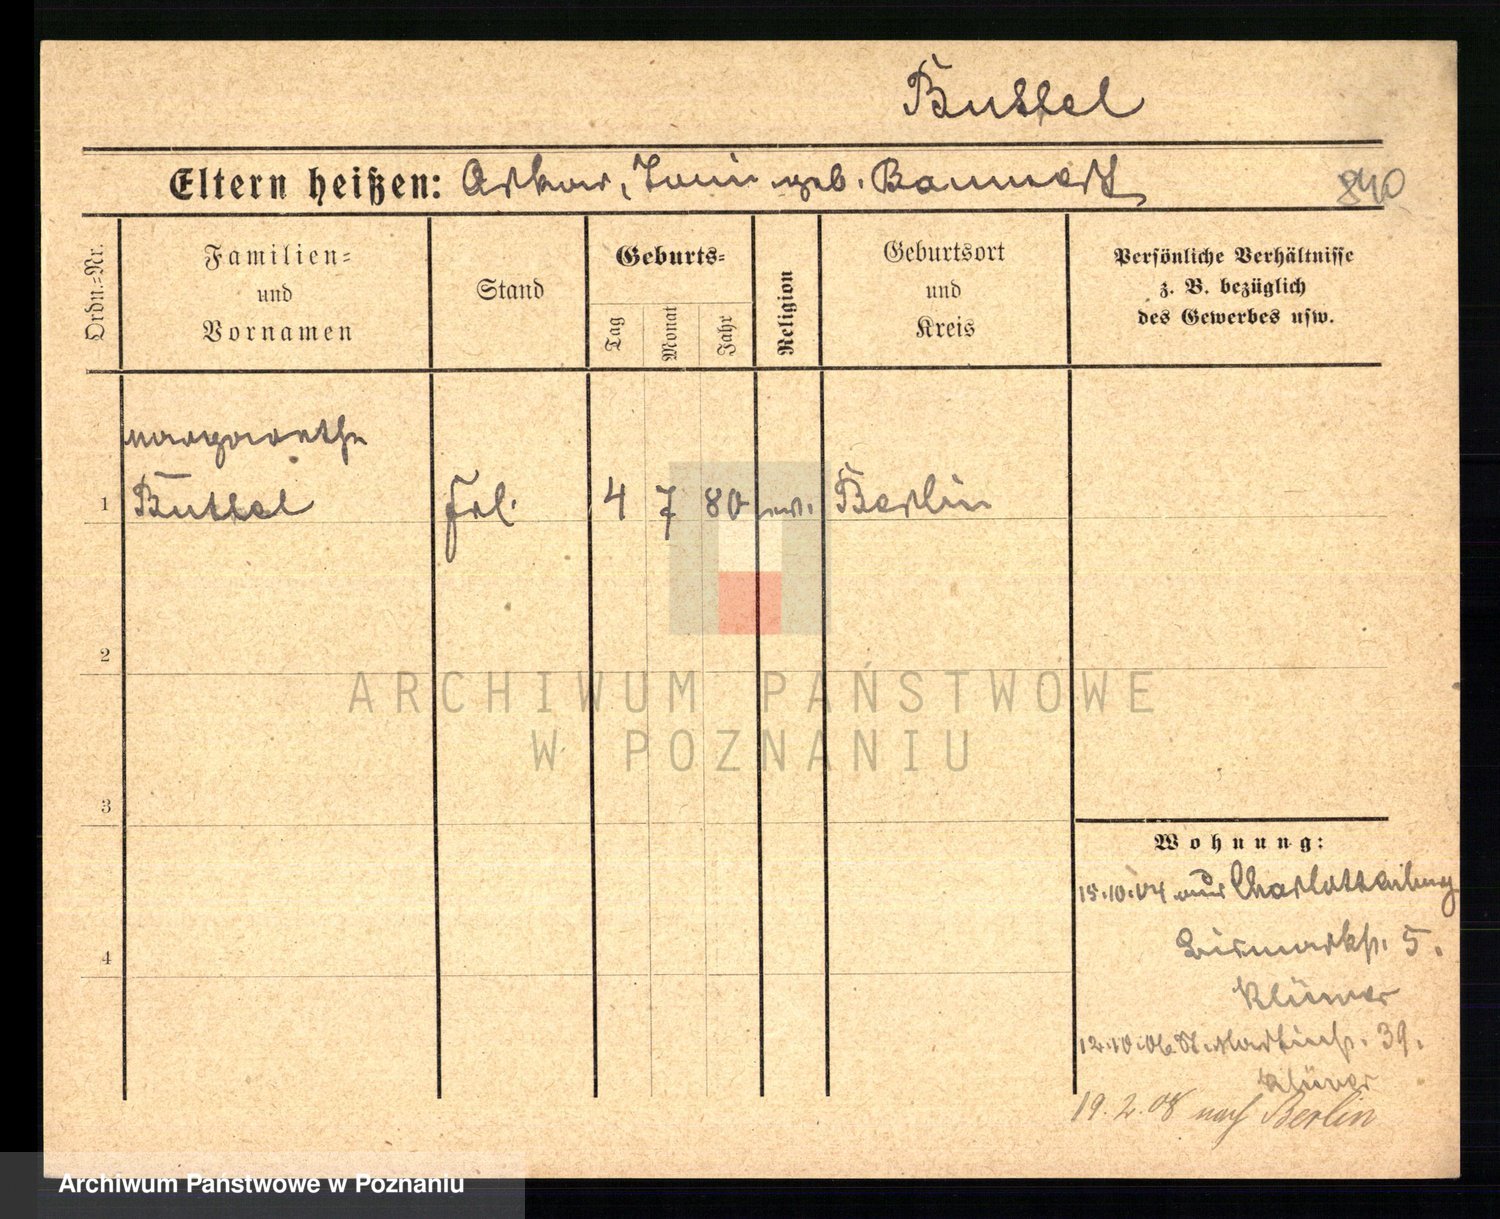 Buttel
Eltern heißen: Oskar, Louise geb. Baumert
840
Ordn.-Nr.
Familien-
und
Vornamen
Stand
Geburts-
Tag
Monat
Jahr
Religion
Geburtsort
und
Kreis
Persönliche Verhältnisse
z. B. bezüglich
des Gewerbes usw.
Margarethe
1 Buttel Frl. 4 7 80 ev. Berlin
2
ARCHIWUM PAŃSTWOWE
W POZNANIU
3
Wohnung:
15.10.04 aus Charlottenburg
4
Bismarkstr. 5.
Klüver
12.10.06 St. Martinstr. 39.
Klüver
19.2.08 nach Berlin
Archiwum Państwowe w Poznaniu